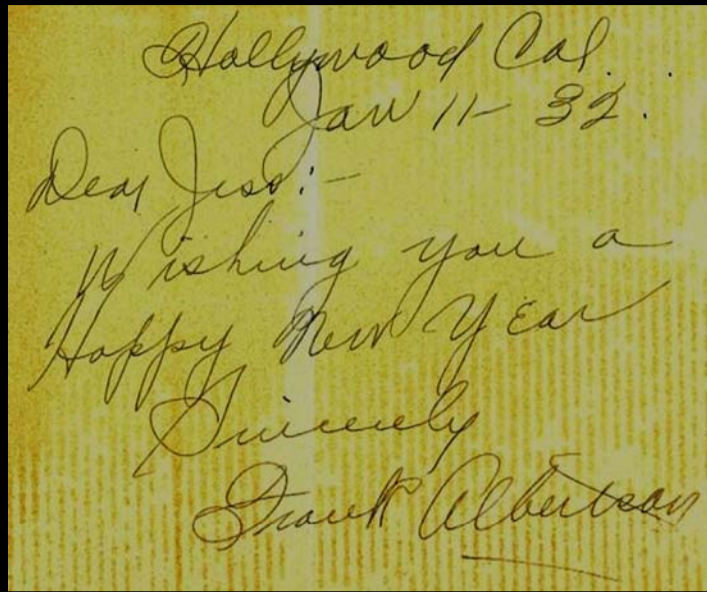 Hollywood Cal.
Jan 11- 32.
Dear Jess:-
Wishing you a
Happy New Year
Sincerely
Frank Albertson